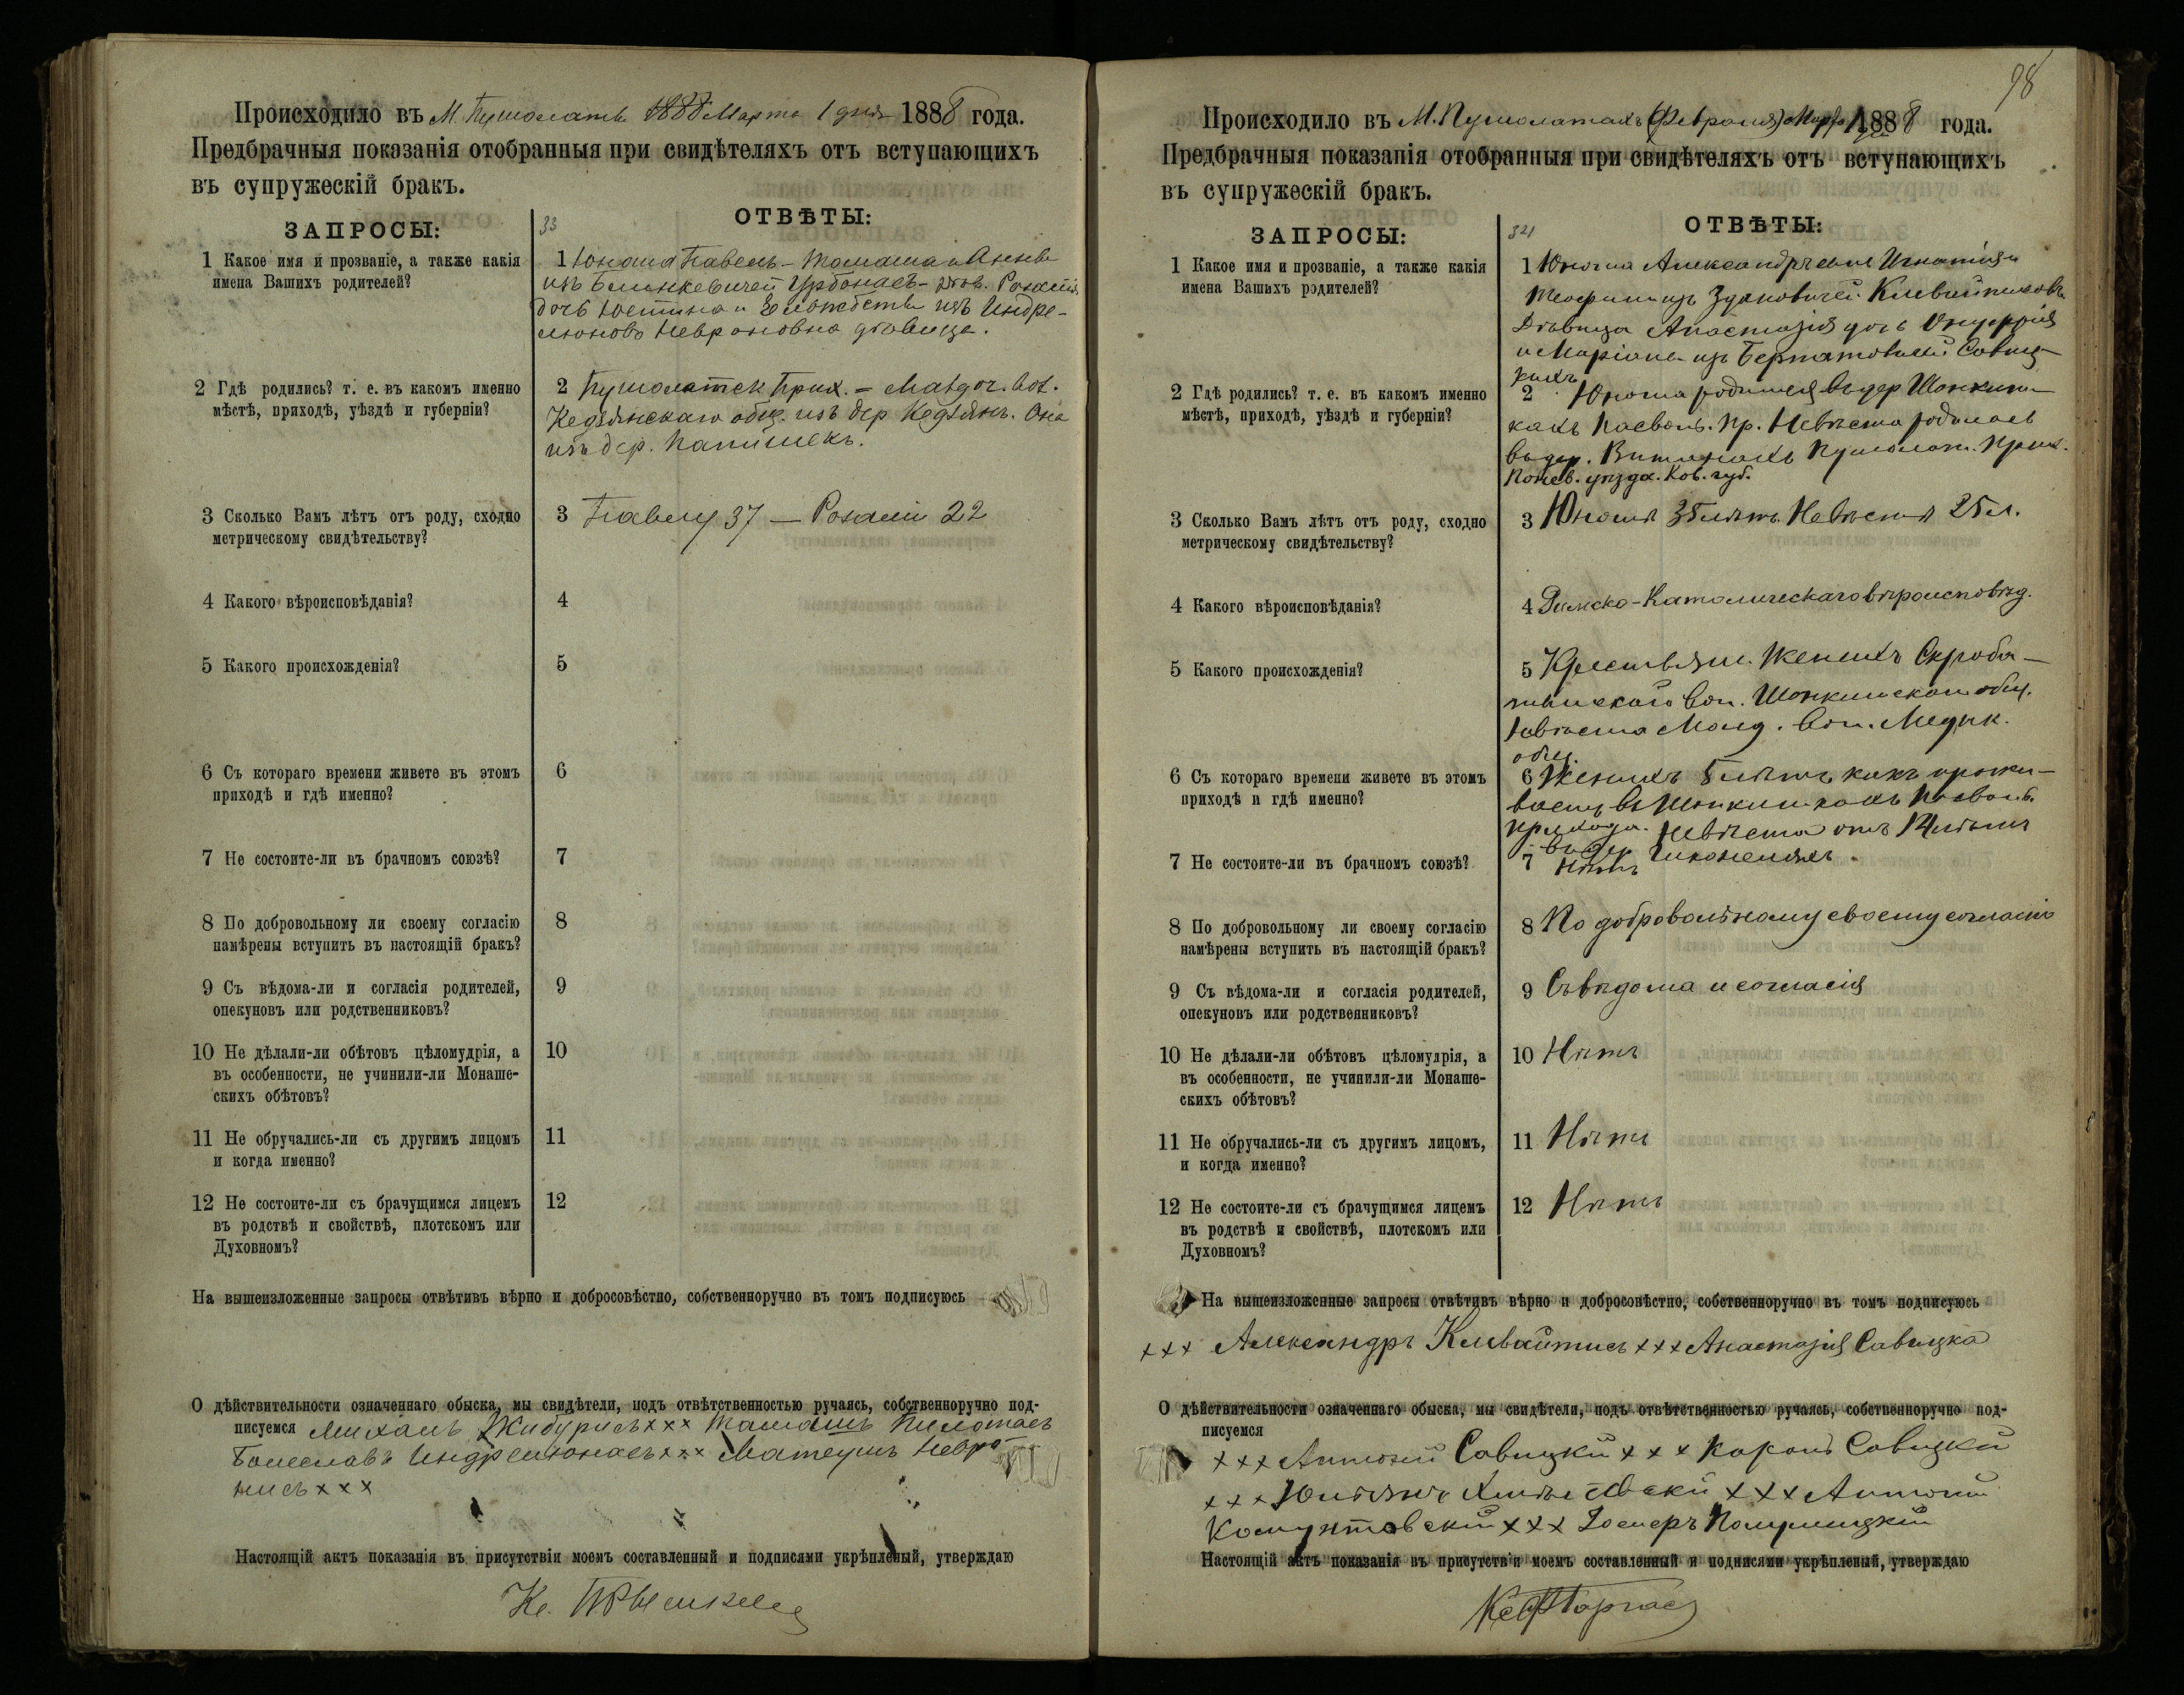 Происходило въ М. Пушолатѣ 1888 Марта 1 дня 1888 года.
Предбрачныя показанія отобранныя при свидѣтеляхъ отъ вступающихъ
въ супружескій бракъ.
ЗАПРОСЫ:
33 ОТВѢТЫ:
1 Какое имя и прозваніе, а также какія
имена Вашихъ родителей?
1 Юноша Павелъ – Томаша и Анны
изъ Урбонасъ – дѣв. Розалія
дочь Юстина и изъ Индре-
люновъ Невроновна дѣвица.
2 Гдѣ родились? т. е. въ какомъ именно
мѣстѣ, приходѣ, уѣздѣ и губерніи?
2 Пушолатск Прих. – вол.
Кедзянскаго общ. изъ дер. Кедзянъ. Она
изъ дер. Папишекъ.
3 Сколько Вамъ лѣтъ отъ роду, сходно
метрическому свидѣтельству?
3 Павлу 37 — Розаліи 22
4 Какого вѣроисповѣданія?
4
5 Какого происхожденія?
5
6 Съ котораго времени живете въ этомъ
приходѣ и гдѣ именно?
6
7 Не состоите-ли въ брачномъ союзѣ?
7
8 По добровольному ли своему согласію
намѣрены вступить въ настоящій бракъ?
8
9 Съ вѣдома-ли и согласія родителей,
опекуновъ или родственниковъ?
9
10 Не дѣлали-ли обѣтовъ цѣломудрія, а
въ особенности, не учинили-ли Монаше-
скихъ обѣтовъ?
10
11 Не обручались-ли съ другимъ лицомъ
и когда именно?
11
12 Не состоите-ли съ брачущимся лицемъ
въ родствѣ и свойствѣ, плотскомъ или
Духовномъ?
12
На вышеизложенные запросы отвѣтивъ вѣрно и добросовѣстно, собственноручно въ томъ подписуюсь
О дѣйствительности означеннаго обыска, мы свидѣтели, подъ отвѣтственностью ручаясь, собственноручно под-
писуемся Михаль Жибурисъ ××× Томашъ Пилотасъ
Болеславъ Индрелюнасъ ××× Матеушъ Невро-
нисъ ×××
Настоящій актъ показанія въ присутствіи моемъ составленный и подписями укрѣпленый, утверждаю
Кс.
98
Происходило въ М. Пушолатахъ (Февраля) Марта 1 1888 года.
Предбрачныя показанія отобранныя при свидѣтеляхъ отъ вступающихъ
въ супружескій бракъ.
ЗАПРОСЫ:
ОТВѢТЫ:
1 Какое имя и прозваніе, а также какія
имена Вашихъ родителей?
1 Юноша Александръ сынъ Игнатія и
Теофили изъ Здановичей
Дѣвица Анастазія дочь Онуфрія
и Маріанны изъ Савиц-
кихъ
2 Гдѣ родились? т. е. въ какомъ именно
мѣстѣ, приходѣ, уѣздѣ и губерніи?
2 Юноша родился въ дер
кахъ Посволь. Пр. Невѣста родилась
въ дер. Пушолат. Прих.
Понев. уѣзда. Ков. губ.
3 Сколько Вамъ лѣтъ отъ роду, сходно
метрическому свидѣтельству?
3 Юноша 35 лѣтъ Невѣста 25 л.
4 Какого вѣроисповѣданія?
4 Римско-Католическаго вѣроисповѣд.
5 Какого происхожденія?
5 Крестьяне. Женихъ Скроба-
тынскаго вол. общ.
Невѣста вол.
общ.
6 Съ котораго времени живете въ этомъ
приходѣ и гдѣ именно?
6 Женихъ 5 лѣтъ какъ прожи-
ваетъ въ Посволь.
прихода. Невѣста отъ 14 лѣтъ
въ дер.
7 Не состоите-ли въ брачномъ союзѣ?
7 Нѣтъ
8 По добровольному ли своему согласію
намѣрены вступить въ настоящій бракъ?
8 По добровольному своему согласію
9 Съ вѣдома-ли и согласія родителей,
опекуновъ или родственниковъ?
9 Съ вѣдома и согласія
10 Не дѣлали-ли обѣтовъ цѣломудрія, а
въ особенности, не учинили-ли Монаше-
скихъ обѣтовъ?
10 Нѣтъ
11 Не обручались-ли съ другимъ лицомъ,
и когда именно?
11 Нѣтъ
12 Не состоите-ли съ брачущимся лицемъ
въ родствѣ и свойствѣ, плотскомъ или
Духовномъ?
12 Нѣтъ
На вышеизложенные запросы отвѣтивъ вѣрно и добросовѣстно, собственноручно въ томъ подписуюсь
××× Александръ Клевайтисъ ××× Анастазія Савицка
О дѣйствительности означеннаго обыска, мы свидѣтели, подъ отвѣтственностью ручаясь, собственноручно под-
писуемся
××× Антоній Савицкій ××× Кароль Савицкій
××× Юліянъ ××× Антоній
×××
Настоящій актъ показанія въ присутствіи моемъ составленный и подписями укрѣпленый, утверждаю